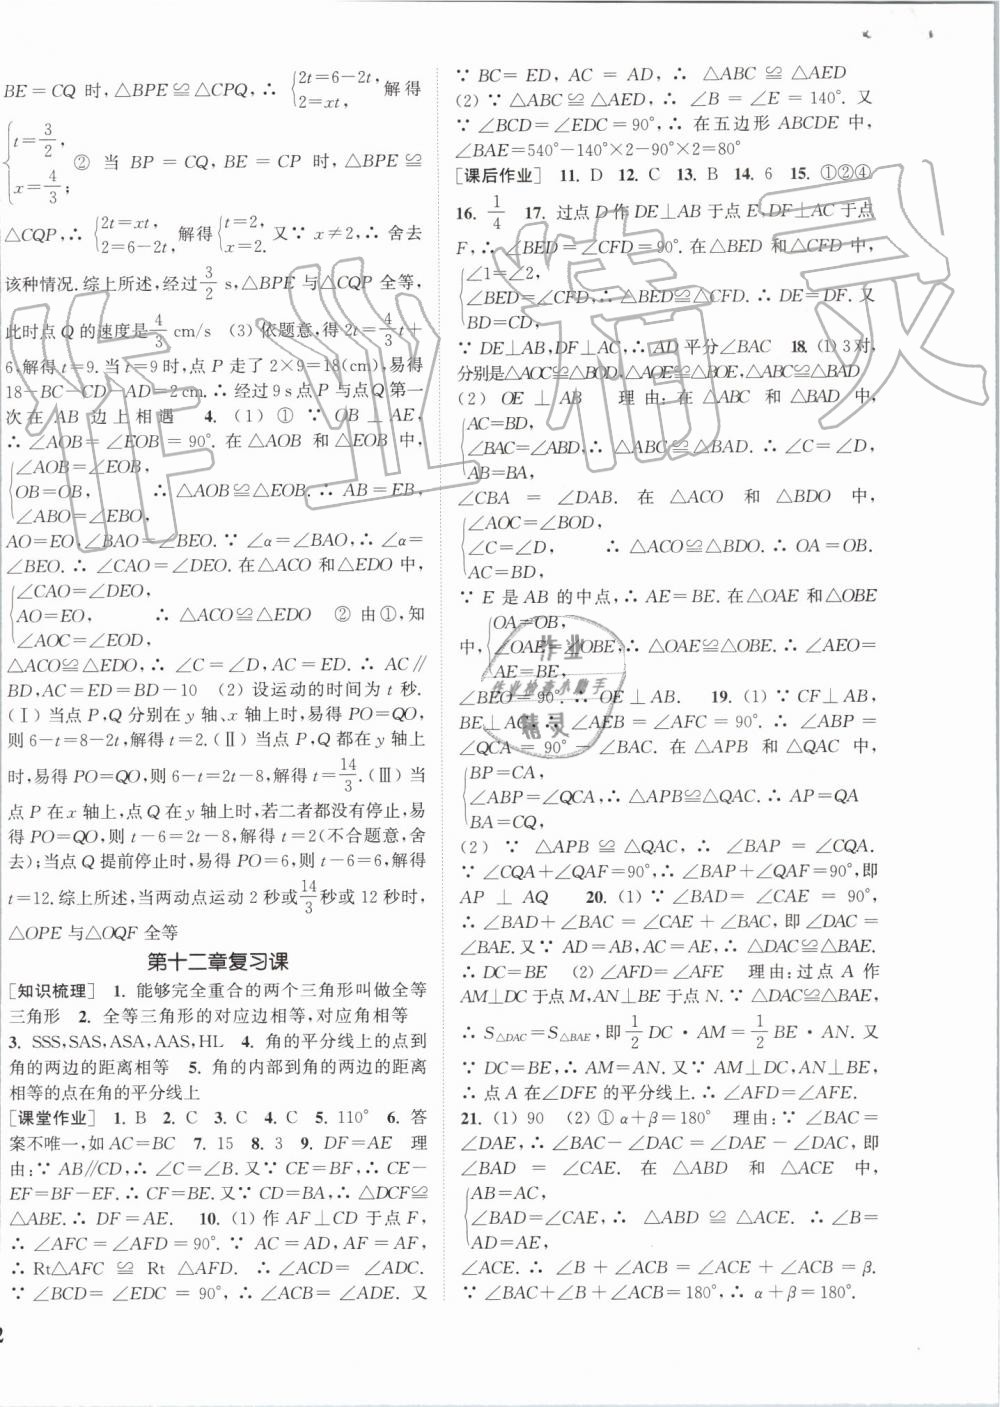 BE=CQ 时,△BPE≌△CPQ,∴ {2t=6-2t, 2=xt, 解得
{t=3/2, x=4/3; ② 当 BP=CQ,BE=CP 时,△BPE≌
△CQP,∴ {2t=xt, 2=6-2t, 解得{t=2, x=2. 又∵ x≠2,∴ 舍去
该种情况.综上所述,经过3/2 s,△BPE 与△CQP 全等,
此时点 Q 的速度是4/3 cm/s (3) 依题意,得 2t=4/3t+
6,解得 t=9.当 t=9 时,点 P 走了 2×9=18(cm).易得
18-BC-CD-AD=2 cm.∴ 经过 9 s 点 P 与点 Q 第一
次在 AB 边上相遇 4. (1) ① ∵ OB⊥AE,
∴ ∠AOB=∠EOB=90°.在△AOB 和△EOB 中,
{∠AOB=∠EOB,
OB=OB, ∴ △AOB≌△EOB.∴ AB=EB,
∠ABO=∠EBO,
AO=EO,∠BAO=∠BEO.∵ ∠α=∠BAO,∴ ∠α=
∠BEO.∴ ∠CAO=∠DEO.在△ACO 和△EDO 中,
{∠CAO=∠DEO,
AO=EO, ∴ △ACO≌△EDO ② 由①,知
∠AOC=∠EOD,
△ACO≌△EDO,∴ ∠C=∠D,AC=ED.∴ AC∥
BD,AC=DE=BD-10 (2) 设运动的时间为 t 秒.
(Ⅰ) 当点 P,Q 分别在 y 轴、x 轴上时,易得 PO=QO,
则 6-t=8-2t,解得 t=2.(Ⅱ) 当点 P,Q 都在 y 轴上
时,易得 PO=QO,则 6-t=2t-8,解得 t=14/3.(Ⅲ) 当
点 P 在 x 轴上,点 Q 在 y 轴上时,若二者都没有停止,易
得 PO=QO,则 t-6=2t-8,解得 t=2(不合题意,舍
去);当点 Q 提前停止时,易得 PO=6,则 t-6=6,解得
t=12.综上所述,当两动点运动 2 秒或14/3秒或 12 秒时,
△OPE 与△OQF 全等
第十二章复习课
[知识梳理] 1. 能够完全重合的两个三角形叫做全等
三角形 2. 全等三角形的对应边相等,对应角相等
3. SSS,SAS,ASA,AAS,HL 4. 角的平分线上的点到
角的两边的距离相等 5. 角的内部到角的两边的距离
相等的点在角的平分线上
[课堂作业] 1. B 2. C 3. C 4. C 5. 110° 6. 答
案不唯一,如 AC=BC 7. 15 8. 3 9. DF=AE 理
由:∵ AB∥CD,∴ ∠C=∠B.又∵ CE=BF,∴ CE-
EF=BF-EF.∴ CF=BE.又∵ CD=BA,∴ △DCF≌
△ABE.∴ DF=AE. 10. (1) 作 AF⊥CD 于点 F,
∴ ∠AFC=∠AFD=90°.∵ AC=AD,AF=AF,
∴ Rt△AFC≌Rt△AFD.∴ ∠ACD=∠ADC.
∵ ∠BCD=∠EDC=90°,∴ ∠ACB=∠ADE.又
2
∵ BC=ED,AC=AD,∴ △ABC≌△AED
(2) ∵ △ABC≌△AED,∴ ∠B=∠E=140°.又
∵ ∠BCD=∠EDC=90°,∴ 在五边形 ABCDE 中,
∠BAE=540°-140°×2-90°×2=80°
[课后作业] 11. D 12. C 13. B 14. 6 15. ①②④
16. 1/4 17. 过点 D 作 DE⊥AB 于点 E,DF⊥AC 于点
F,∴ ∠BED=∠CFD=90°.在△BED 和△CFD 中,
{∠1=∠2,
∠BED=∠CFD,∴ △BED≌△CFD.∴ DE=DF.又
BD=CD,
∵ DE⊥AB,DF⊥AC,∴ AD 平分∠BAC 18. (1) 3 对,
分别是△AOC≌△BOD,△AOE≌△BOE,△ABC≌△BAD
(2) OE⊥AB 理由:在△ABC 和△BAD 中,
{AC=BD,
∠BAC=∠ABD,∴ △ABC≌△BAD.∴ ∠C=∠D,
AB=BA,
∠CBA=∠DAB.在△ACO 和△BDO 中,
{∠AOC=∠BOD,
∠C=∠D, ∴ △ACO≌△BDO.∴ OA=OB.
AC=BD,
∵ E 是 AB 的中点,∴ AE=BE.在△OAE 和△OBE
中,{OA=OB,
∠OAE=∠OBE,∴ △OAE≌△OBE.∴ ∠AEO=
AE=BE,
∠BEO=90°.∴ OE⊥AB. 19. (1) ∵ CF⊥AB,
BE⊥AC,∴ ∠AEB=∠AFC=90°.∴ ∠ABP=
∠QCA=90°-∠BAC.在△APB 和△QAC 中,
{BP=CA,
∠ABP=∠QCA,∴ △APB≌△QAC.∴ AP=QA
BA=CQ,
(2) ∵ △APB≌△QAC,∴ ∠BAP=∠CQA.
∵ ∠CQA+∠QAF=90°,∴ ∠BAP+∠QAF=90°,即
AP⊥AQ 20. (1) ∵ ∠BAD=∠CAE=90°,
∴ ∠BAD+∠BAC=∠CAE+∠BAC,即∠DAC=
∠BAE.又∵ AD=AB,AC=AE,∴ △DAC≌△BAE.
∴ DC=BE (2) ∠AFD=∠AFE 理由:过点 A 作
AM⊥DC 于点 M,AN⊥BE 于点 N.∵ △DAC≌△BAE,
∴ S△DAC=S△BAE,即1/2DC·AM=1/2BE·AN.又
∵ DC=BE,∴ AM=AN.又∵ AM⊥DC,AN⊥BE,
∴ 点 A 在∠DFE 的平分线上.∴ ∠AFD=∠AFE
21. (1) 90 (2) ① α+β=180° 理由:∵ ∠BAC=
∠DAE,∴ ∠BAC-∠DAC=∠DAE-∠DAC,即
∠BAD=∠CAE.在△ABD 和△ACE 中,
{AB=AC,
∠BAD=∠CAE,∴ △ABD≌△ACE.∴ ∠B=
AD=AE,
∠ACE.∴ ∠B+∠ACB=∠ACE+∠ACB.
∵ ∠BAC+∠B+∠ACB=180°,∴ α+β=180°.
作业精灵
作业
作业检查小助手
精灵